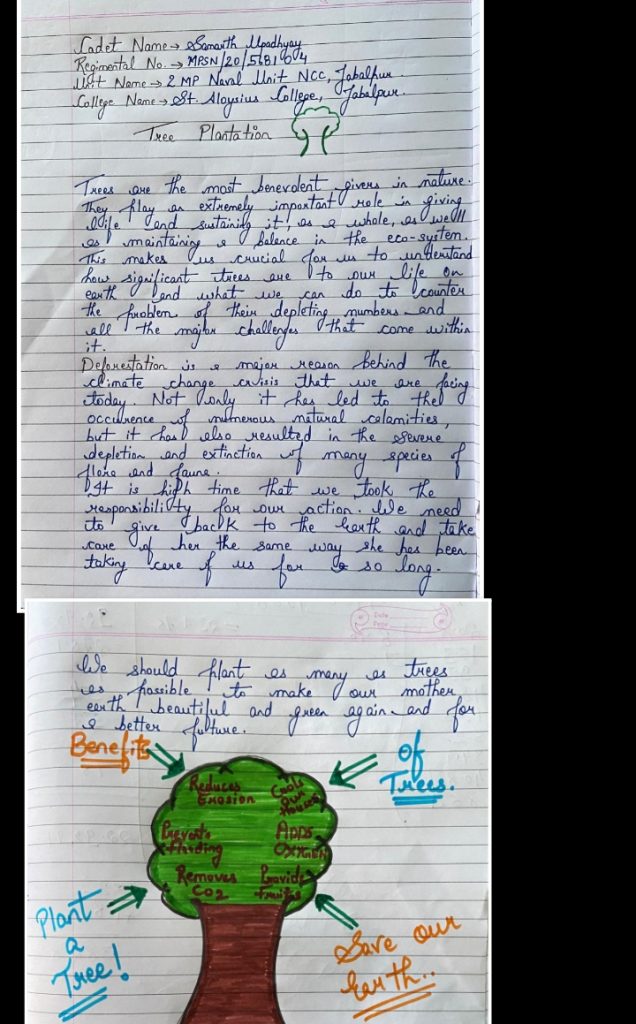 Cadet Name → Samarth Upadhyay
Regimental No. → MPSN/20/
Unit Name → 2 MP Naval Unit NCC, Jabalpur.
College Name → St. Aloysius College, Jabalpur.
Tree Plantation
Trees are the most benevolent givers in nature.
They play an extremely important role in giving
life and sustaining it, as a whole, as well
as maintaining a balance in the eco-system.
This makes us crucial for us to understand
how significant trees are to our life on
earth and what we can do to counter
the problem of their depleting numbers and
all the major challenges that come within
it.
Deforestation is a major reason behind the
climate change crisis that we are facing
today. Not only it has led to the
occurence of numerous natural calamities,
but it has also resulted in the severe
depletion and extinction of many species of
flora and fauna.
It is high time that we took the
responsibility for our action. We need
to give back to the Earth and take
care of her the same way she has been
taking care of us for so long.
Date
Page
We should plant as many as trees
as possible to make our mother
earth beautiful and green again and for
a better future.
Benefits Of
Trees.
Reduces
Erosion
Cools
Our
Houses
Prevents
Flooding
Adds
Oxygen
Removes
CO2
Provides
Fruits
Plant
a
Tree!
Save our
Earth..